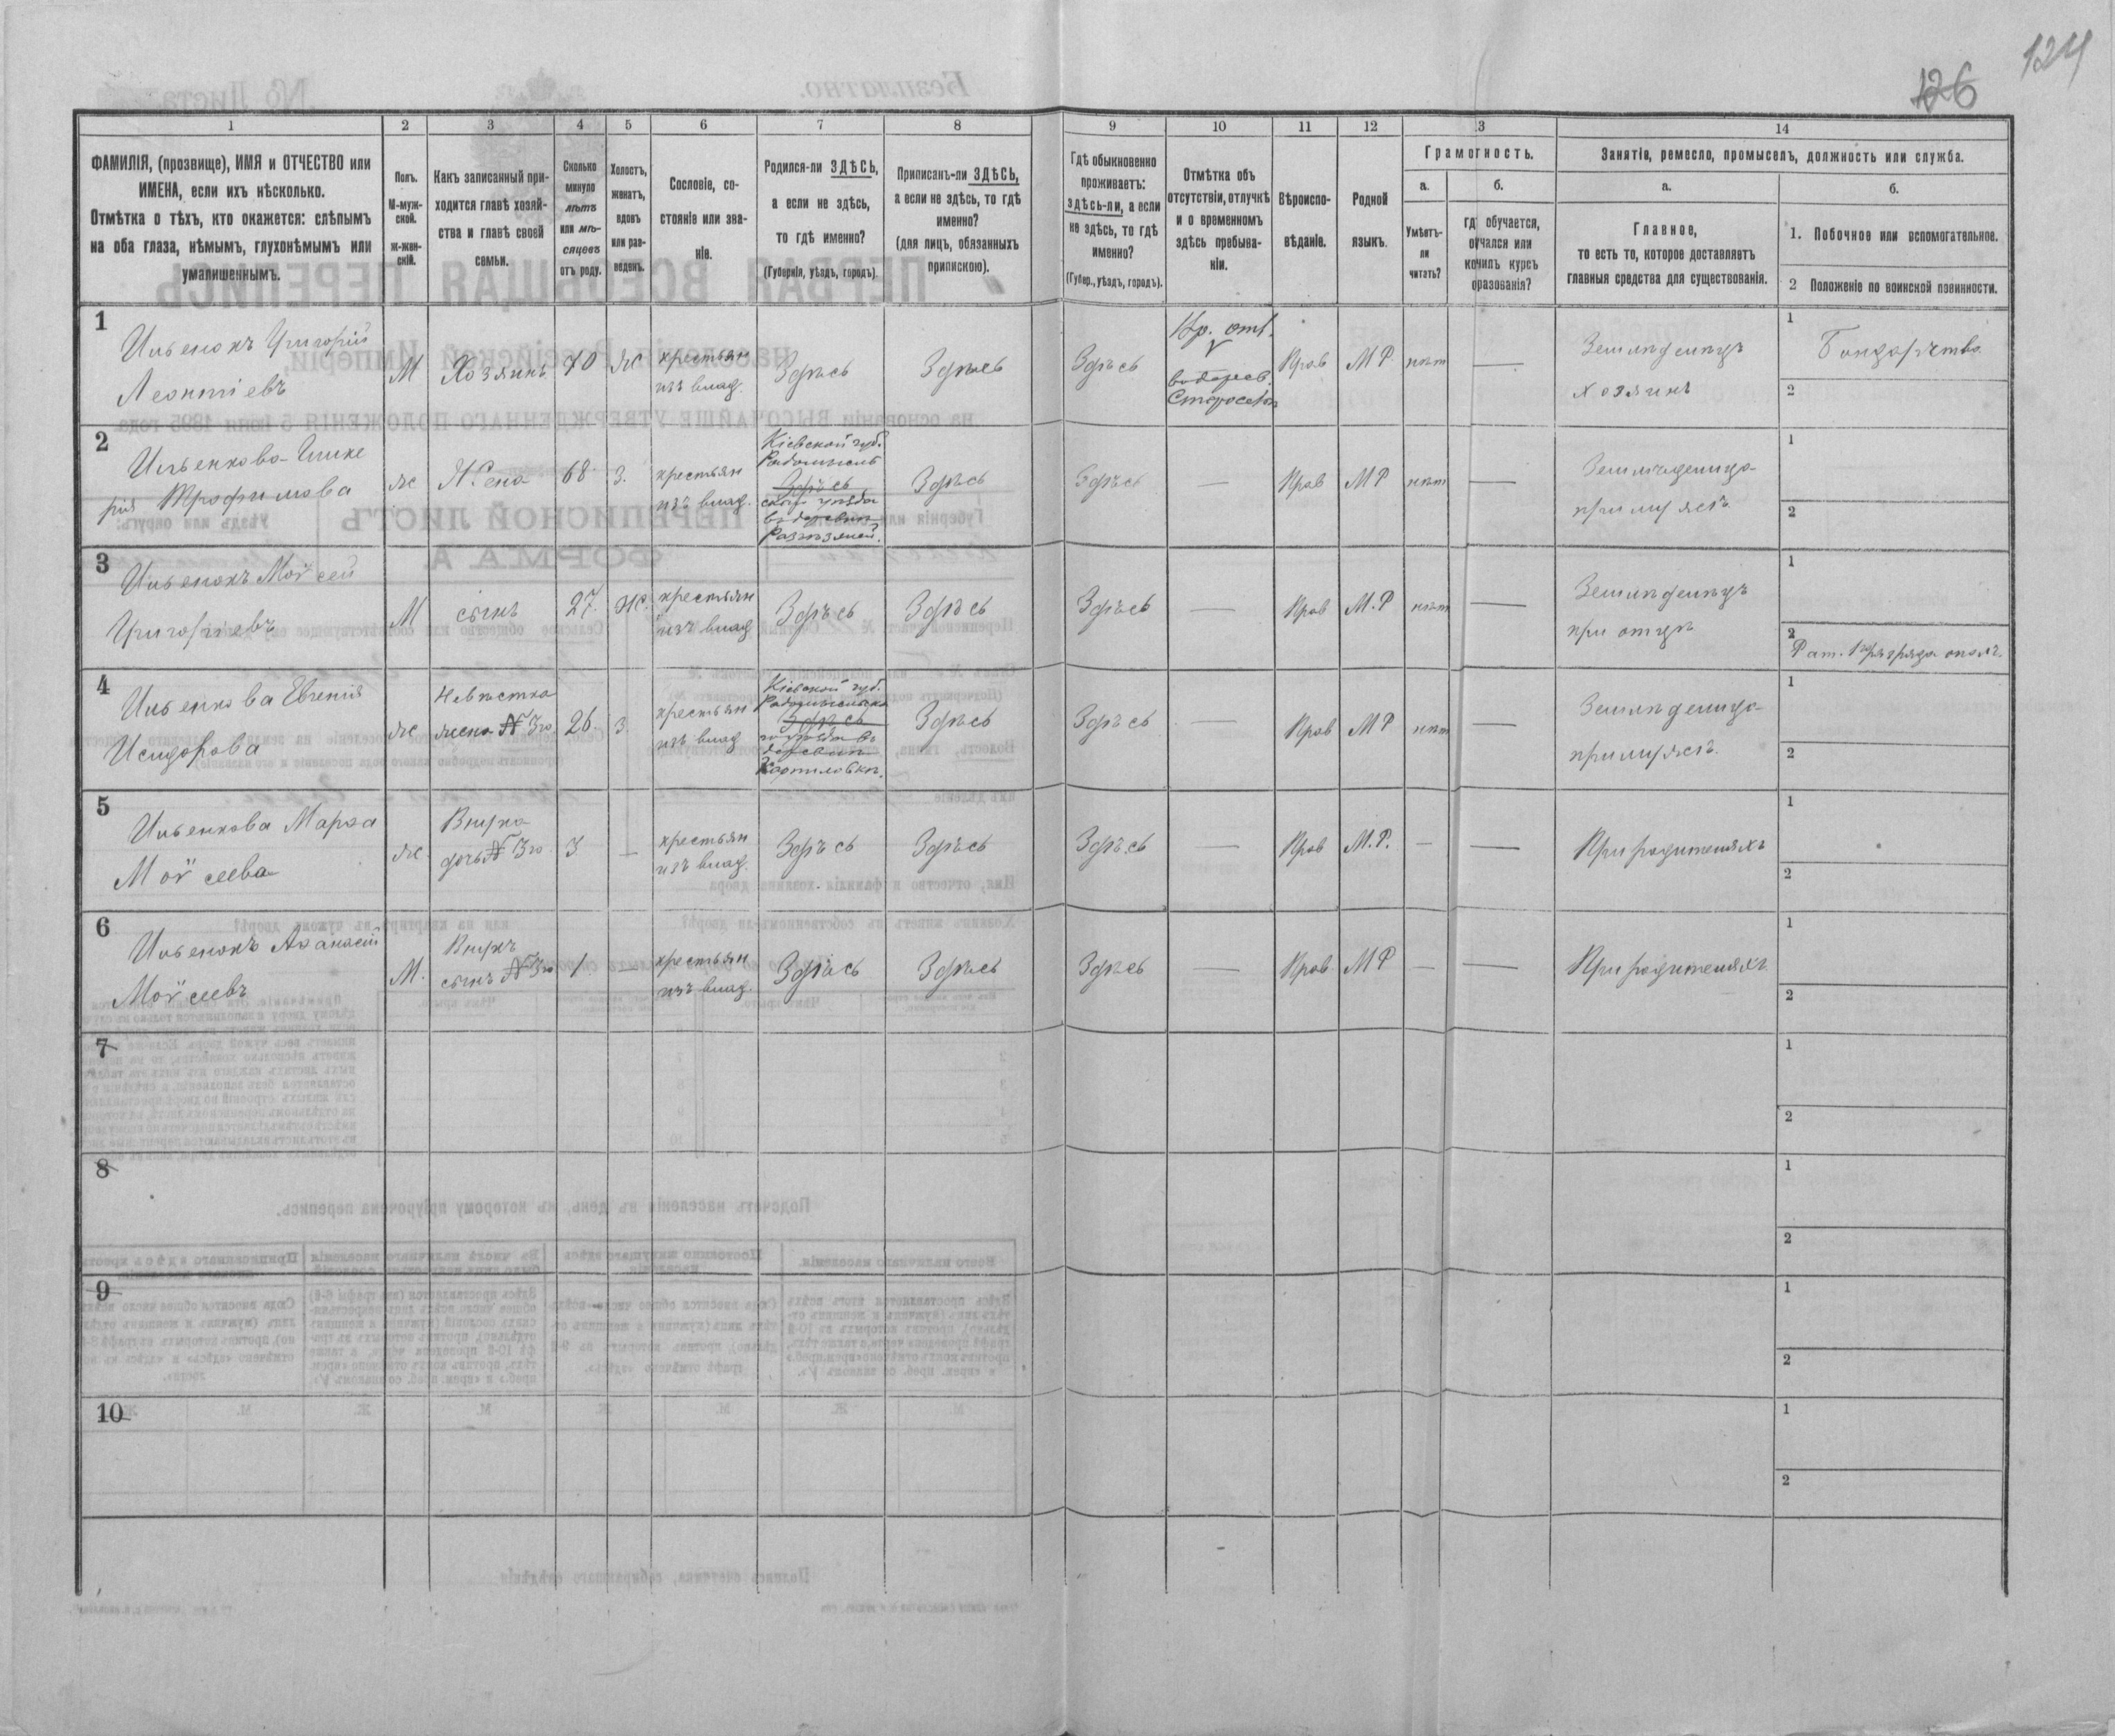 124
126
1 2 3 4 5 6 7 8 9 10 11 12 13 14
ФАМИЛІЯ, (прозвище), ИМЯ и ОТЧЕСТВО или
ИМЕНА, если ихъ нѣсколько.
Отмѣтка о тѣхъ, кто окажется: слѣпымъ
на оба глаза, нѣмымъ, глухонѣмымъ или
умалишеннымъ.
Полъ.
М-муж-
ской.
Ж-жен-
скій.
Какъ записанный при-
ходится главѣ хозяй-
ства и главѣ своей
семьи.
Сколько
минуло
лѣтъ
или мѣ-
сяцевъ
отъ роду.
Холостъ,
женатъ,
вдовъ
или раз-
веденъ.
Сословіе, со-
стояніе или зва-
ніе.
Родился-ли ЗДѢСЬ,
а если не здѣсь,
то гдѣ именно?
(Губернія, уѣздъ, городъ).
Приписанъ-ли ЗДѢСЬ,
а если не здѣсь, то гдѣ
именно?
(для лицъ, обязанныхъ
припискою).
Гдѣ обыкновенно
проживаетъ:
здѣсь-ли, а если
не здѣсь, то гдѣ
именно?
(Губер., уѣздъ, городъ).
Отмѣтка объ
отсутствіи, отлучкѣ
и о временномъ
здѣсь пребыва-
ніи.
Вѣроиспо-
вѣданіе.
Родной
языкъ.
Грамотность.
а.
Умѣетъ-
ли
читать?
б.
гдѣ обучается,
обучался или
кончилъ курсъ
образованія?
Занятіе, ремесло, промыселъ, должность или служба.
а.
Главное,
то есть то, которое доставляетъ
главныя средства для существованія.
б.
1. Побочное или вспомогательное.
2 Положеніе по воинской повинности.
1
Ильенокъ Григорій
Леонтіевъ
М
Хозяинъ
70
Ж
крестьян
изъ влад.
Здѣсь
Здѣсь
Здѣсь
Вр. отл.
V
Прав
МР
нѣт
—
Земледѣлецъ
хозяинъ
1
Бондарство
2
2
Ильенкова-Глике
рія Трофимова
ж
Жена
68
З.
крестьян
изъ влад.
Кіевской губ.
Радомысль
Здѣсь
скаго уѣзда
въ деревнѣ
Здѣсь
Здѣсь
—
Прав
МР
нѣт
—
Земледѣлица
при мужѣ
1
2
3
Ильенокъ Мойсей
Григорьевъ
М
сынъ
27.
Ж.
крестьян
изъ влад
Здѣсь
Здѣсь
Здѣсь
—
Прав
М.Р
нѣт
—
Земледѣлецъ
при отцѣ
1
2
Рат. 1 разряда ополч.
4
Ильенкова Евгенія
Исидорова
ж
Невѣстка
жена № 3го
26.
З
крестьян
изъ влад
Кіевской губ.
Радомысльска
Здѣсь
го уѣзда въ
деревнѣ
Здѣсь
Здѣсь
—
Прав
МР
нѣт
—
Земледѣлица
при мужѣ.
1
2
5
Ильенкова Марѳа
Мойсеева
ж.
Внучка
дочь № 3го.
3
—
крестьян
изъ влад.
Здѣсь
Здѣсь
Здѣсь
—
Прав
М.Р.
—
—
При родителяхъ
1
2
6
Ильенокъ Аѳанасій
Мойсеевъ
М.
Внукъ
сынъ № 3го
1
—
крестьян
изъ влад.
Здѣсь
Здѣсь
Здѣсь
—
Прав
МР
—
—
При родителяхъ
1
2
7
1
2
8
1
2
9
1
2
10
1
2